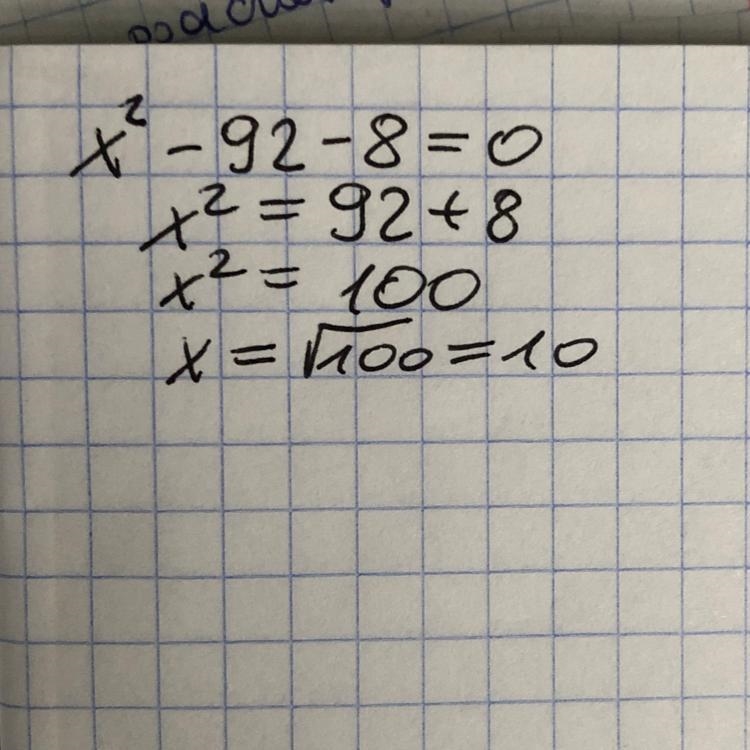 x² - 92 - 8 = 0
x² = 92 + 8
x² = 100
x = √100 = 10